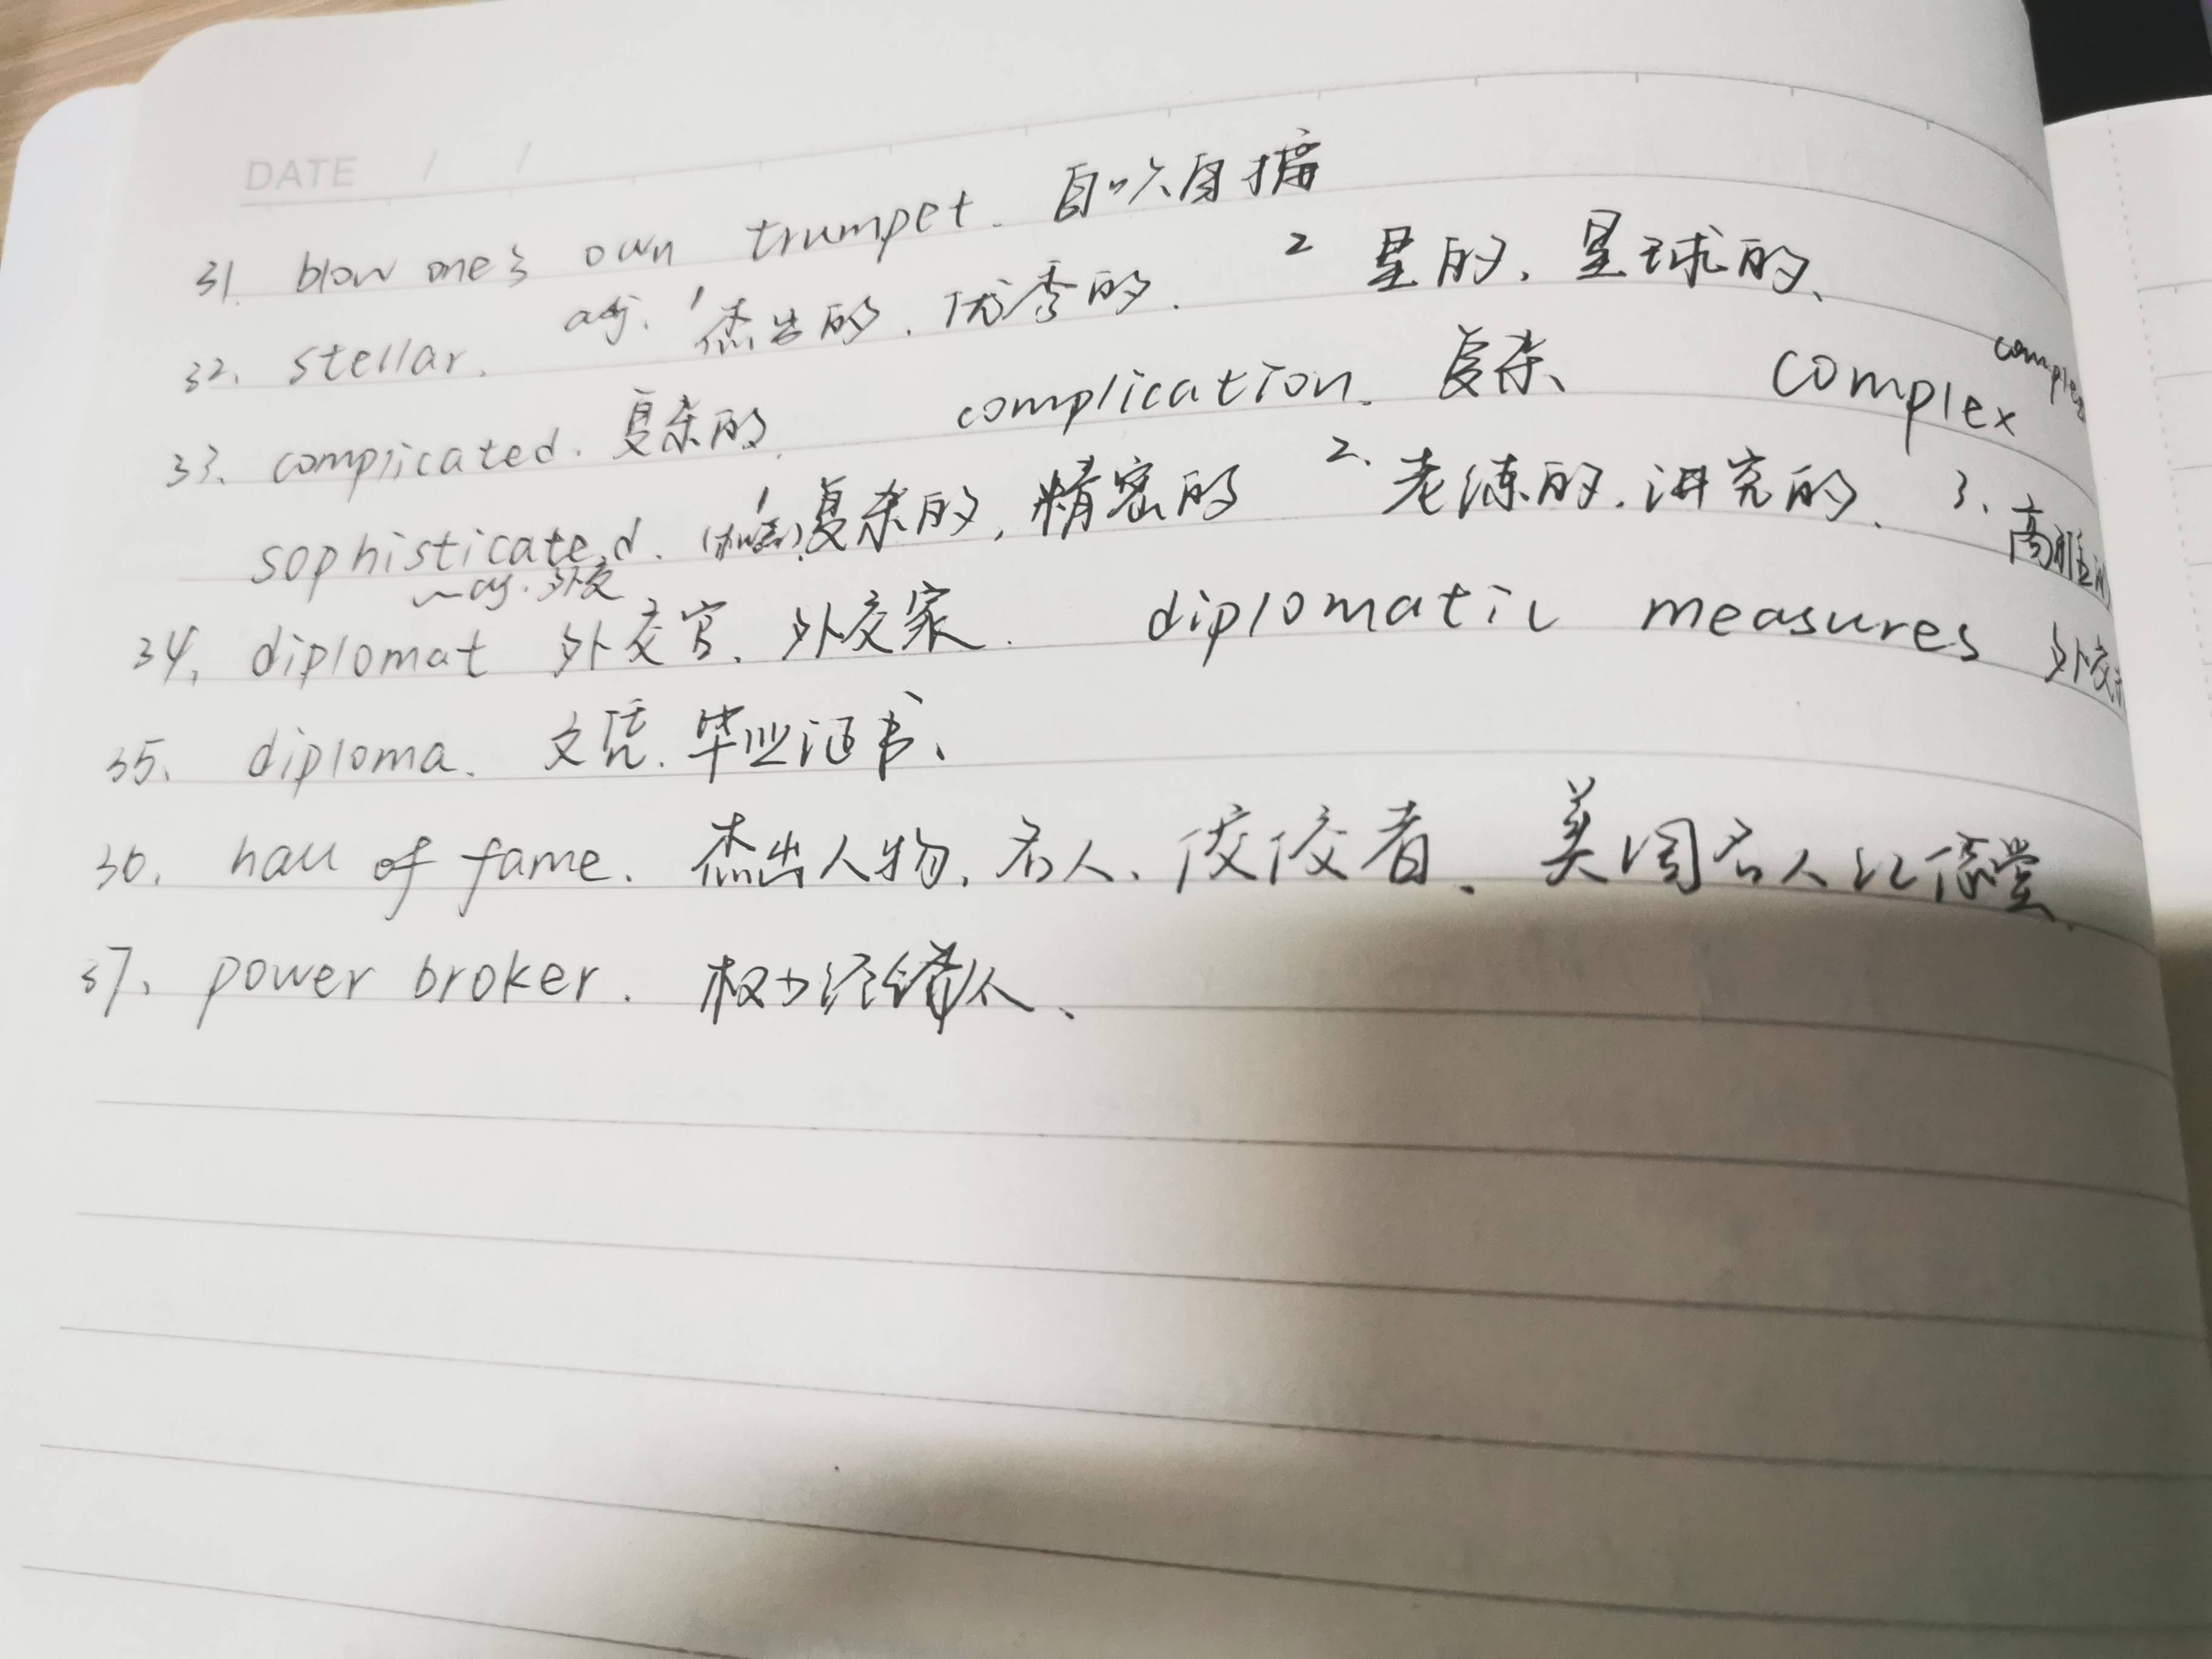 DATE / /
31. blow one's own trumpet. 自吹自擂
32. stellar. adj. 1 杰出的、优秀的. 2 星的、星球的、
33. complicated. 复杂的. complication. 复杂、 complex
sophisticated. 1 复杂的, 精密的 2. 老练的. 讲究的、 3. 高雅的
~ adj. 外交
34. diplomat 外交官、外交家. diplomatic measures 外交
35. diploma. 文凭. 毕业证书、
36. hall of fame. 杰出人物. 名人、佼佼者、美国名人纪念堂
37. power broker. 权力经销人、